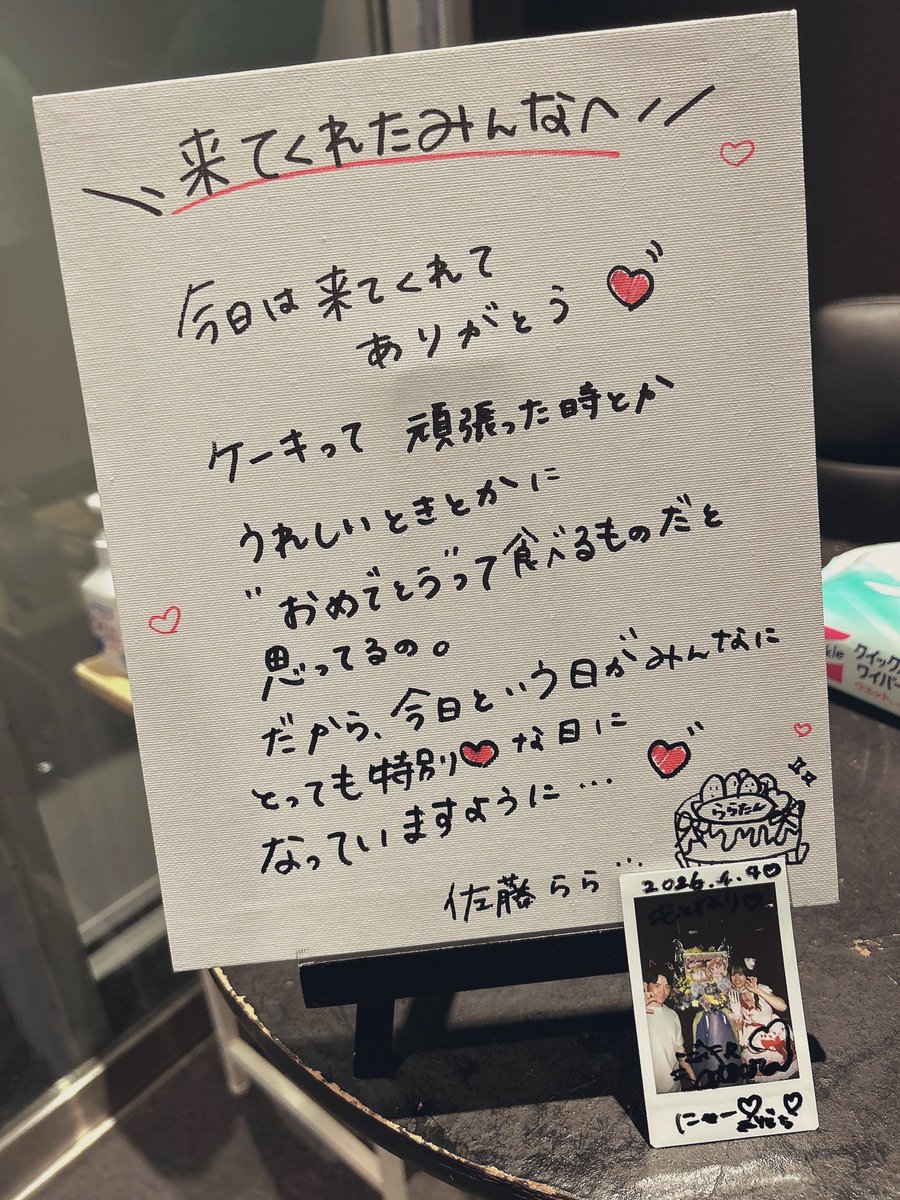 来てくれたみんなへ
今日は来てくれて
ありがとう
ケーキって 頑張った時とか
うれしいときとかに
"おめでとう"って食べるものだと
思ってるの。
だから、今日という日がみんなに
とっても特別な日に
なっていますように…
ららたん
佐藤らら…
2026.4.4
にゃー
クイック
ワイパー
ウエット